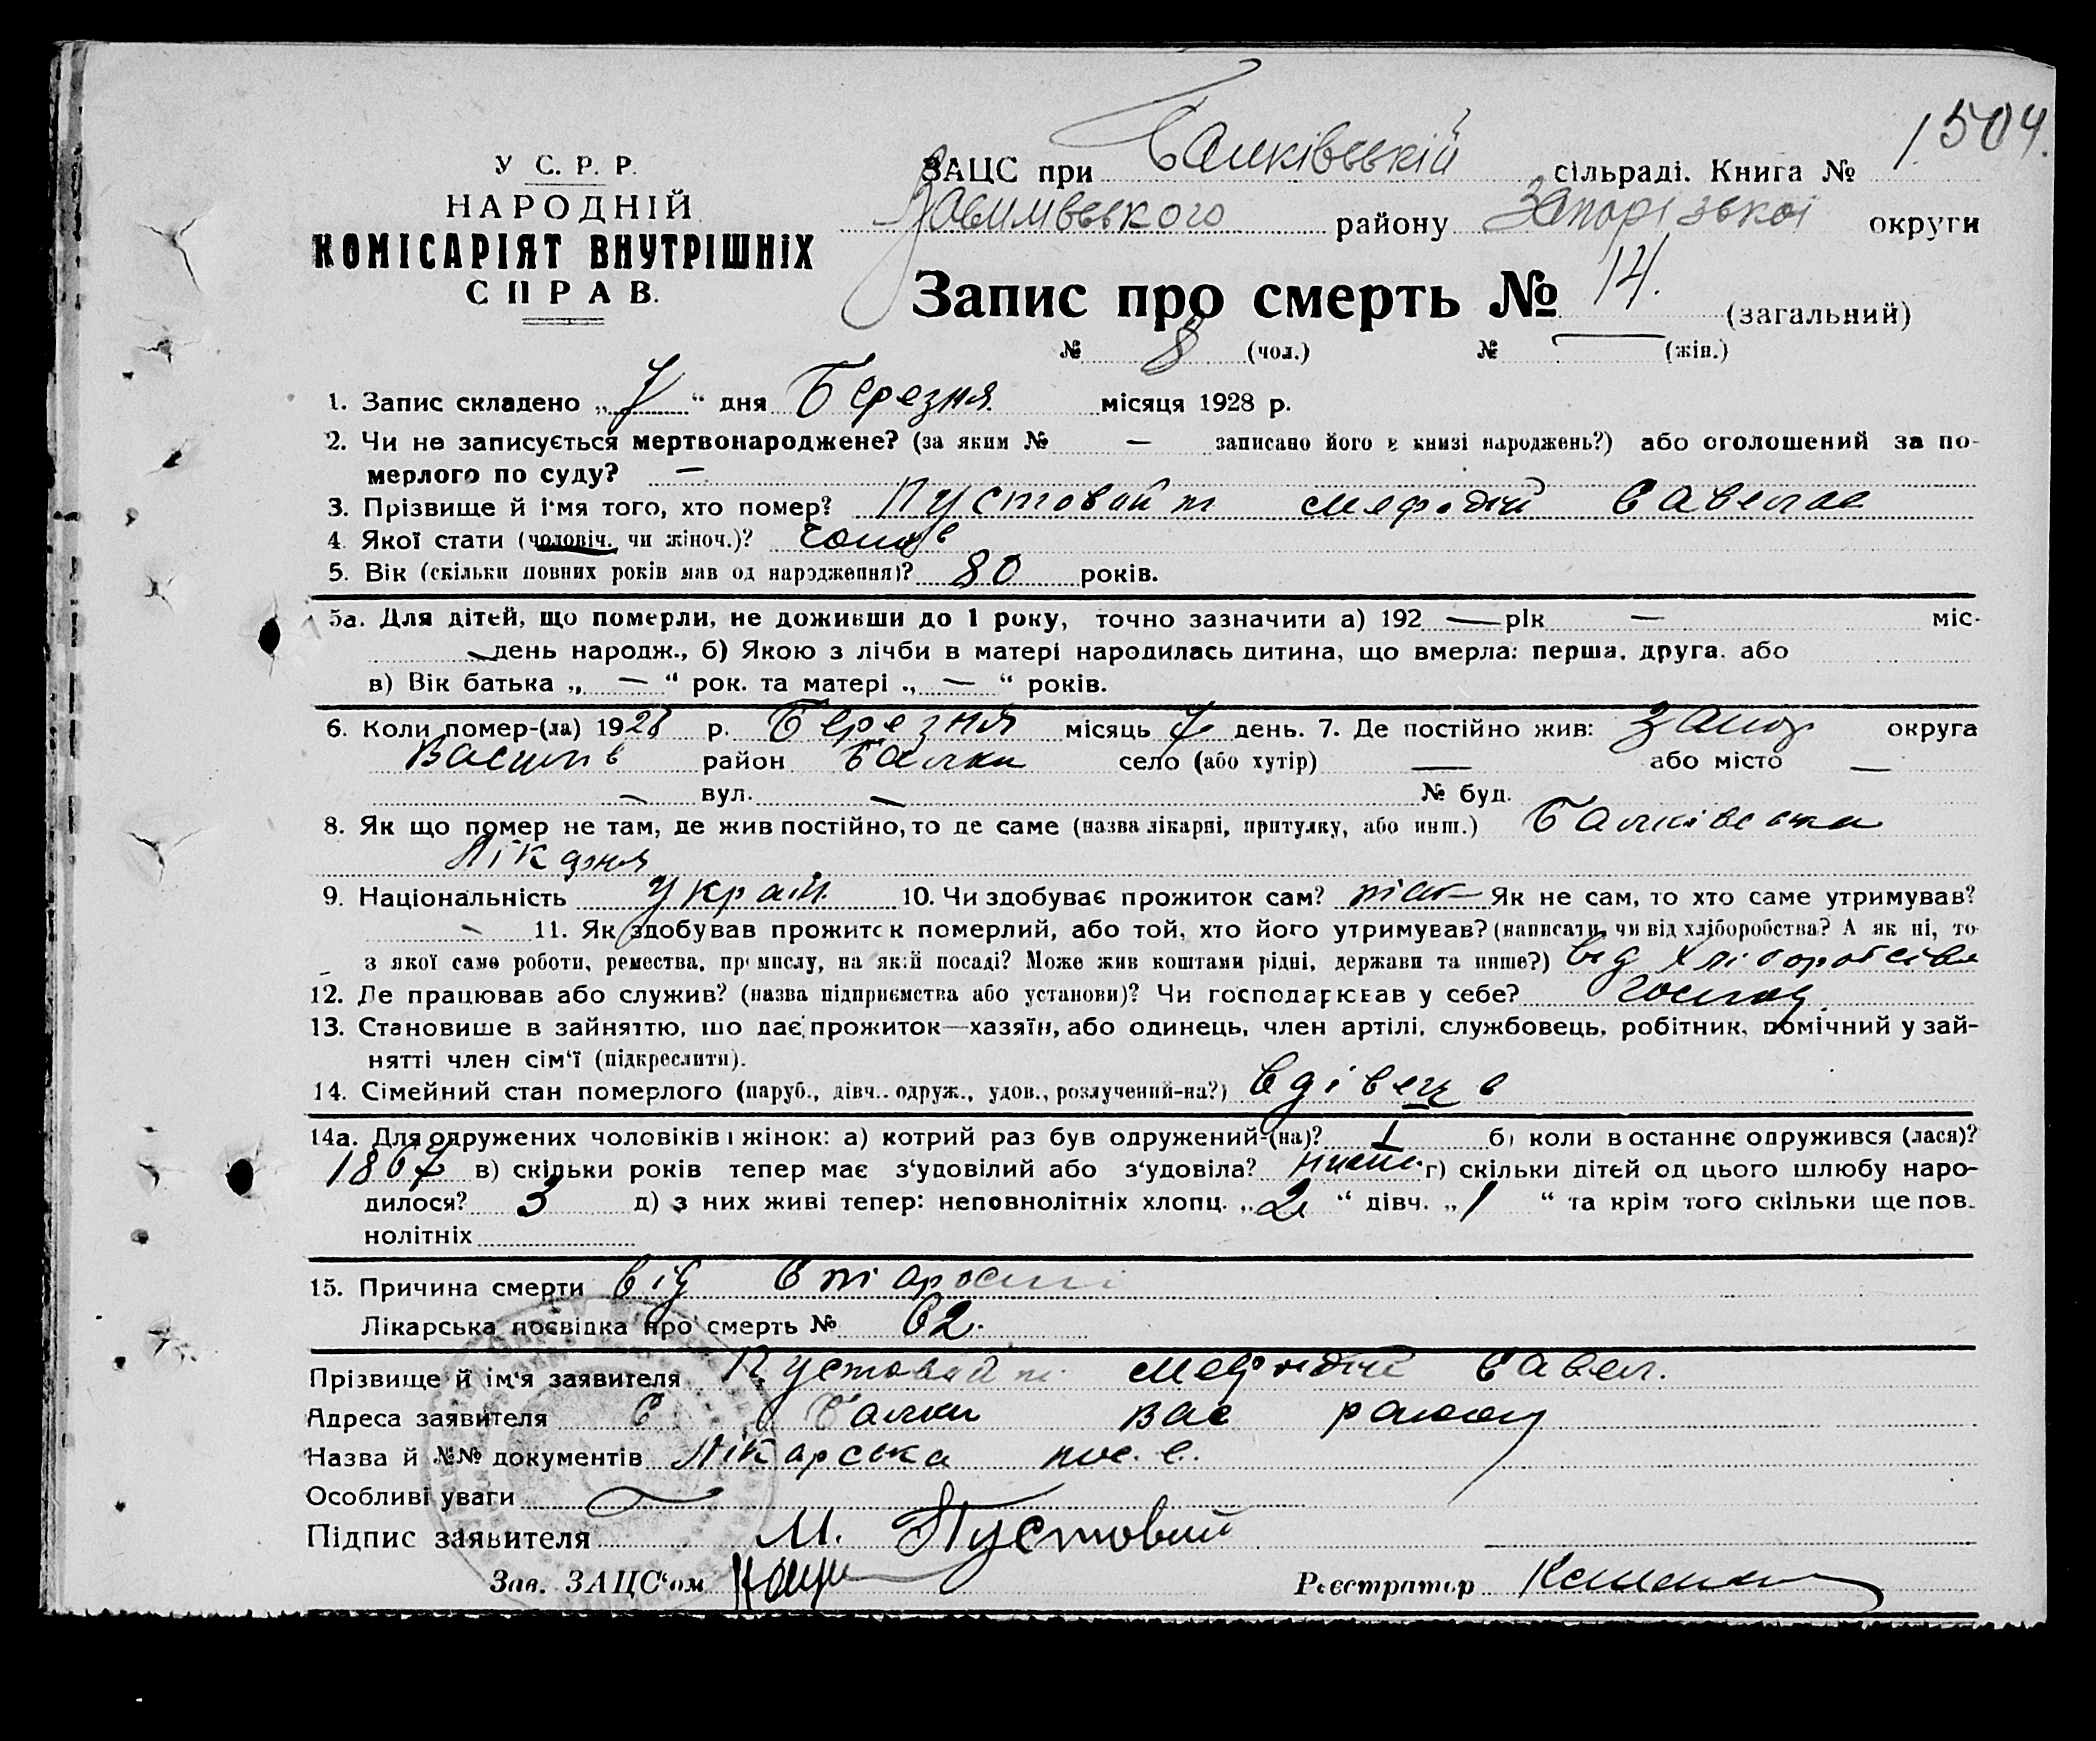 1504.
У С. Р. Р.
НАРОДНІЙ
КОМІСАРІЯТ ВНУТРІШНІХ
СПРАВ.
ЗАЦС при Балківській сільраді. Книга №
Василівського району Запорізької округи
Запис про смерть № 14. (загальний)
№ 8 (чол.) № — (жін.)
1. Запис складено „ 7 “ дня Березня місяця 1928 р.
2. Чи не записується мертвонароджене? (за яким № — записано його в книзі народжень?) або оголошений за по-
мерлого по суду? —
3. Прізвище й ім'я того, хто помер? Пустовойт Мефодій Савелов
4. Якої стати (чоловіч. чи жіноч.)? чолов
5. Вік (скільки повних років мав од народження)? 80 років.
5а. Для дітей, що померли, не доживши до 1 року, точно зазначити а) 192 — рік — міс.
— день народж., б) Якою з лічби в матері народилась дитина, що вмерла: перша, друга, або
в) Вік батька „ — “ рок. та матері „ — “ років.
6. Коли помер-(ла) 1928 р. Березня місяць 7 день. 7. Де постійно жив: Запор округа
Василів район Балки село (або хутір) — або місто —
— вул. — № буд.
8. Як що помер не там, де жив постійно, то де саме (назва лікарні, притулку, або инш.) Балківська
Лікарня
9. Національність україн. 10. Чи здобуває прожиток сам? так Як не сам, то хто саме утримував?
— 11. Як здобував прожиток померлий, або той, хто його утримував? (написати, чи від хліборобства? А як ні, то
з якої саме роботи, ремества, промислу, на якій посаді? Може жив коштами рідні, держави та инше?) від Хліборобства
12. Де працював або служив? (назва підприємства або установи)? Чи господарював у себе? господ
13. Становище в зайняттю, що дає прожиток—хазяїн, або одинець, член артілі, службовець, робітник, помічний у зай-
нятті член сім'ї (підкреслити).
14. Сімейний стан померлого (паруб., дівч.. одруж., удов., розлучений-на?) вдівець
14а. Для одружених чоловіків і жінок: а) котрий раз був одружений-(на)? 1 б) коли в останнє одружився (лася)?
1867 в) скільки років тепер має з'удовілий або з'удовіла? г) скільки дітей од цього шлюбу наро-
дилося? 3 д) з них живі тепер: неповнолітніх хлопц. „ 2 “ дівч. „ 1 “ та крім того скільки ще пов-
нолітніх
15. Причина смерти від старости
Лікарська посвідка про смерть № 62.
Прізвище й ім'я заявителя Пустовойт Мефодій Савел.
Адреса заявителя С Балки Вас району
Назва й №№ документів Лікарська пос. с.
Особливі уваги —
Підпис заявителя М. Пустовий
Зав. ЗАЦС'ом Реєстратор